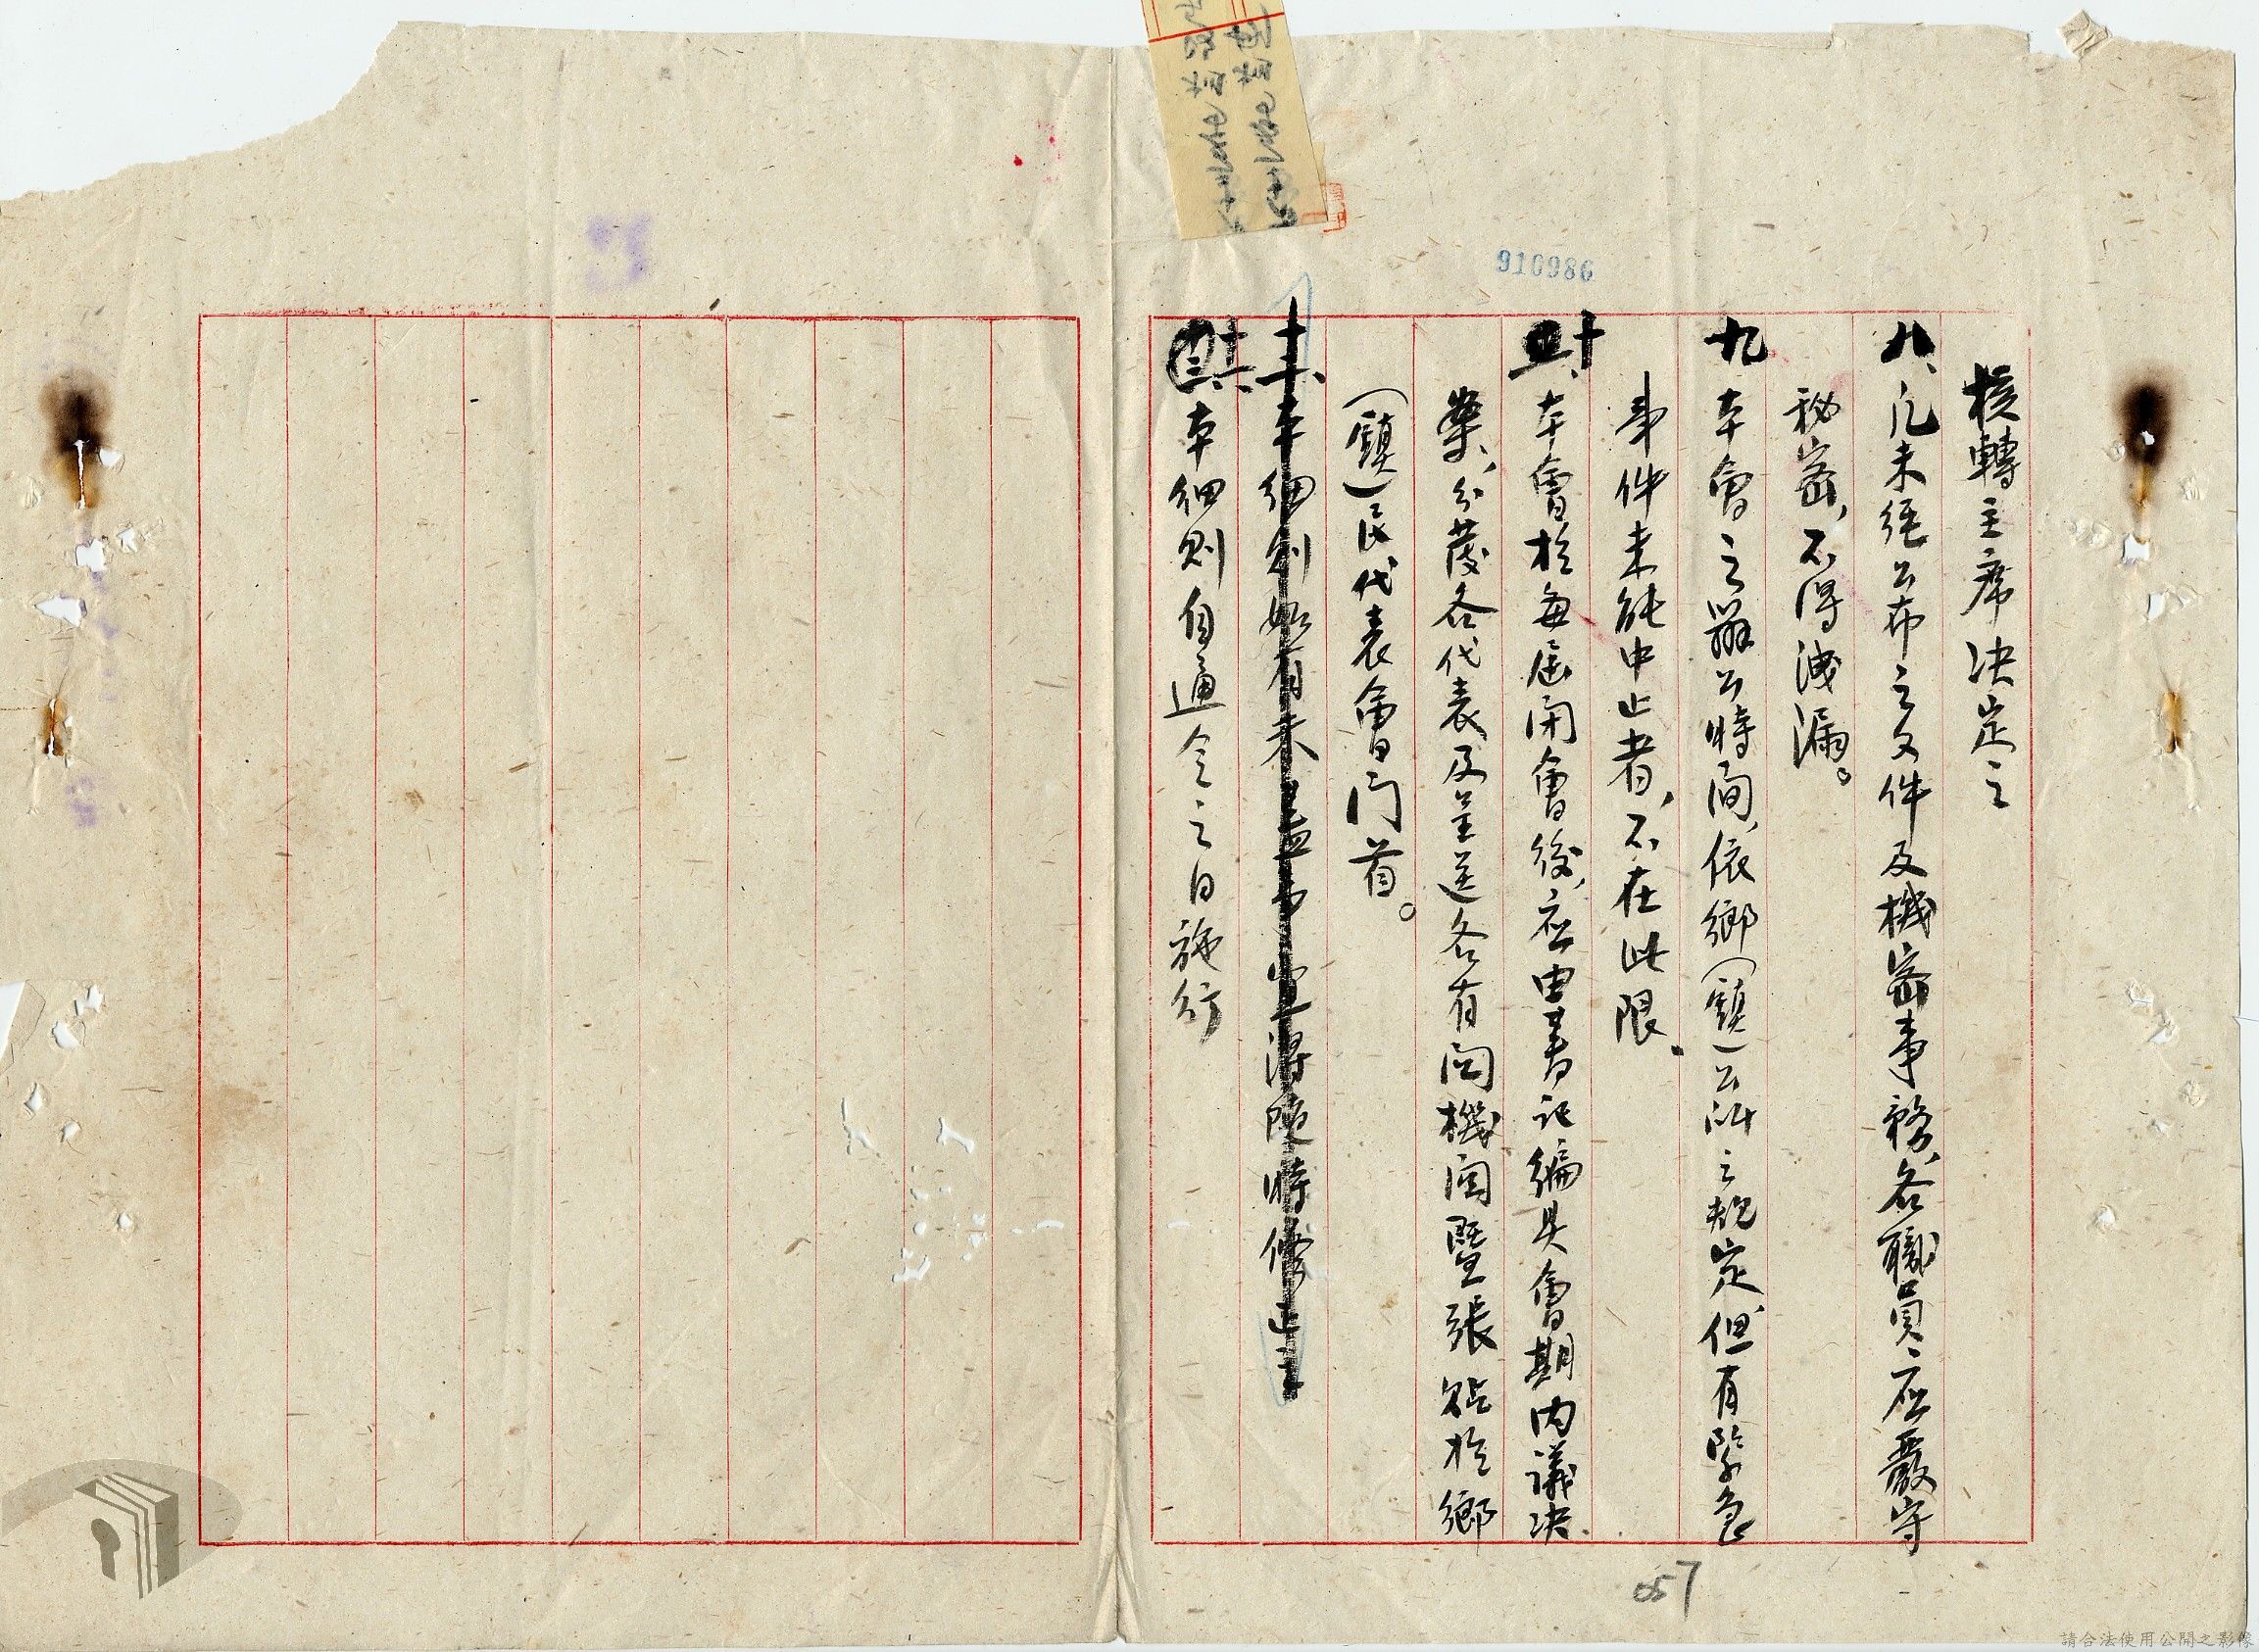 910986
核轉主席決定之
八、凡未經公布之文件及機密事務、各職員應嚴守
秘密,不得洩漏。
九、本會之辦公時間、依鄉(鎮)公所之規定但有緊急
事件未能中止者,不在此限.
十、本會於每屆開會後,應由書記編具會期內議決
案,分發各代表及呈送各有関機関暨張貼於鄉
(鎮)民代表會門首。
本細則如有未盡事宜得隨時修正之
本細則自通令之日施行
057
請合法使用公開之影像